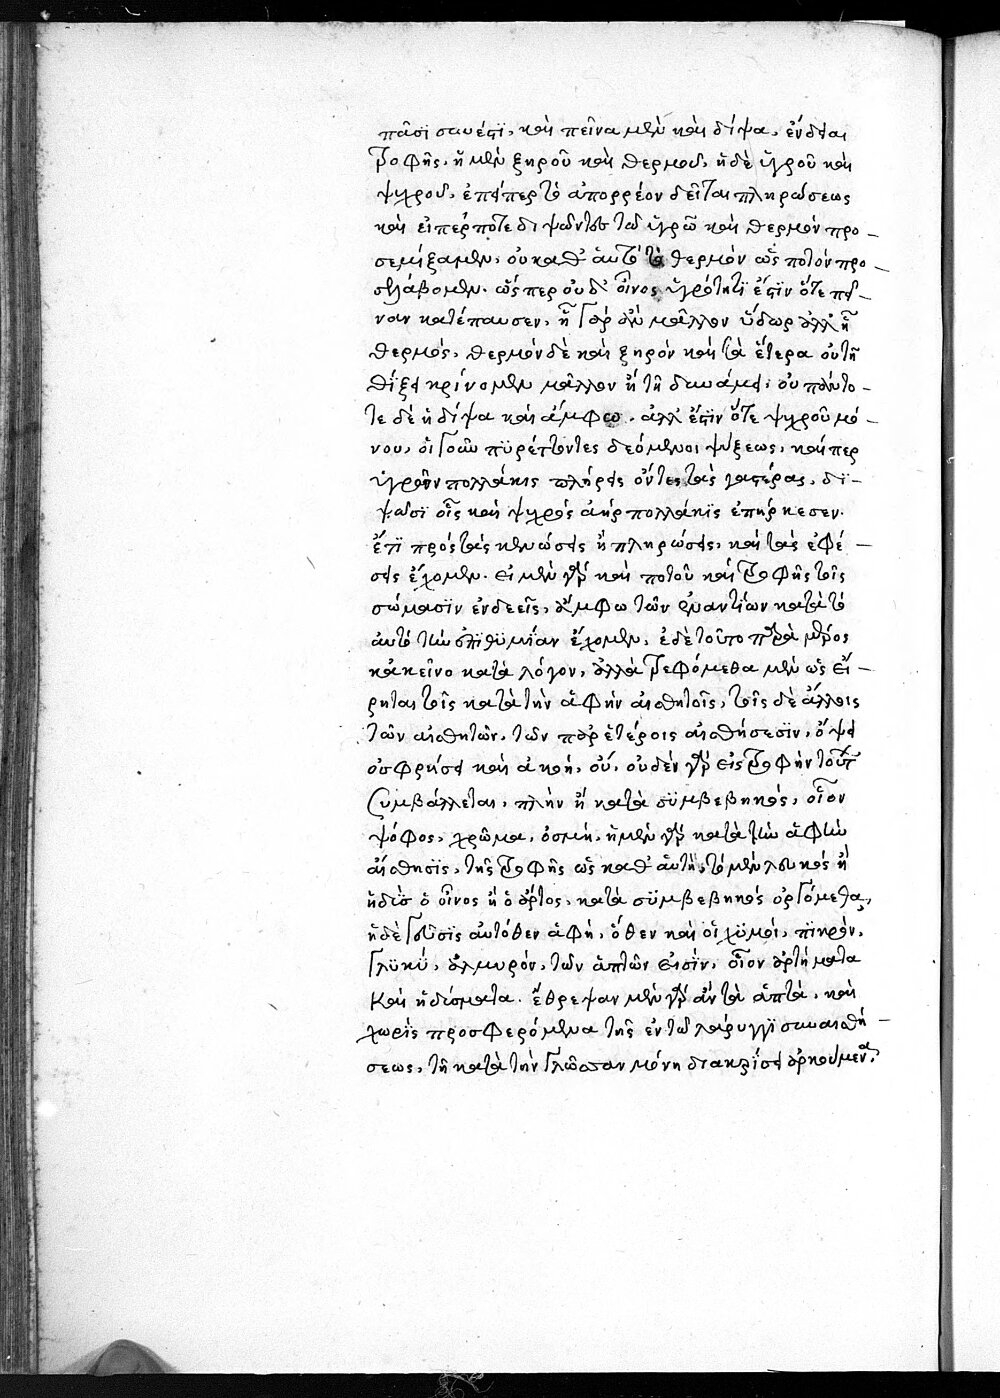 πᾶσι συνέστι, καὶ πεῖνα μὲν καὶ δίψα, ἔνδειαι
τροφῆς, ἡ μὲν ξηροῦ καὶ θερμοῦ, ἡ δὲ ὑγροῦ καὶ
ψυχροῦ, ἐπείπερ τὸ ἀπορρέον δεῖται πληρώσεως
καὶ εἴπερ ποτε διψῶντες τῶ ὑγρῶ καὶ θερμὸν προ-
σεμίξαμεν, οὐ καθ' αὑτὸ τὸ θερμὸν ὡς ποτὸν προ-
σλάβομεν. ὥσπερ οὐδ' οἶνος ὑγρότητι ἔστιν ὅτε πεῖ-
ναν κατέπαυσεν, ἦ γὰρ ἂν μᾶλλον ὕδωρ ἀλλ' ἧ
θερμός, θερμὸν δὲ καὶ ξηρὸν καὶ τὰ ἕτερα οὐ τῆ
θίξει κρίνομεν μᾶλλον ἢ τῆ δυνάμει· οὐ πάντο-
τε δὲ ἡ δίψα καὶ ἄμφω. ἀλλ' ἔστιν ὅτε ψυχροῦ μό-
νου, οἱ γοῦν πυρέττοντες δεόμενοι ψύξεως, καίπερ
ὑγρῶν πολλάκις πλήρεις ὄντες τὰς γαστέρας, δι-
ψῶσι οἷς καὶ ψυχρὸς ἀὴρ πολλάκις ἐπήρκεσεν.
ἔτι πρὸς τὰς κενώσεις ἡ πλήρωσις, καὶ τὰς ἐφέ-
σεις ἔχομεν. εἰ μὲν γὰρ καὶ ποτοῦ καὶ τροφῆς τοῖς
σώμασιν ἐνδεεῖς, ἄμφω τῶν ἐναντίων κατὰ τὸ
αὐτὸ τὴν ἐπιθυμίαν ἔχομεν, εἰ δὲ τοῦτο παρὰ μέρος
κἀκεῖνο κατὰ λόγον, ἀλλὰ τρεφόμεθα μὲν ὡς εἴ-
ρηται τοῖς κατὰ τὴν ἁφὴν αἰσθητοῖς, τοῖς δὲ ἄλλοις
τῶν αἰσθητῶν, τῶν παρ' ἑτέροις αἰσθήσεσιν, ὄψει
ὀσφρήσει καὶ ἀκοῆ, οὔ, οὐδὲν γὰρ εἰς τροφὴν τούτων
συμβάλλεται, πλὴν ἢ κατὰ συμβεβηκός, οἷον
ψόφος, χρῶμα, ὀσμή, ἡ μὲν γὰρ κατὰ τὴν ἁφὴν
αἴσθησις, τῆς τροφῆς ὡς καθ' αὑτή, τὸ μὲν λευκὸς ἢ
ἡδὺς ὁ οἶνος ἢ ὁ ἄρτος, κατὰ συμβεβηκὸς ὀρεγόμεθα,
ἡ δὲ γεῦσις αὐτόθεν ἁφή, ὅθεν καὶ οἱ χυμοί, πικρόν,
γλυκύ, ἁλμυρόν, τῶν ἁπτῶν εἰσίν, οἷον ἀρτήματα
καὶ ἡδύσματα. ἔθρεψαν μὲν γὰρ ἂν τὰ ἁπτά, καὶ
χωρὶς προσφερόμενα τῆς ἐν τῶ λάρυγγι συναισθή-
σεως, τῆ κατὰ τὴν γλῶσσαν μόνη διακρίσει ἀρκούμενα.